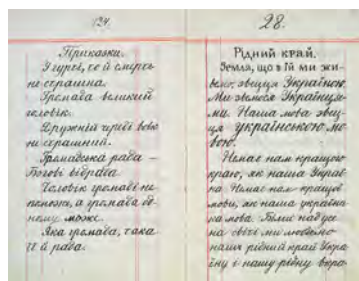 124.
Приказки.
У гурті, то й смерть
не страшна.
Громада великий
чоловік.
Дружній череді вовк
не страшний.
Громадська рада –
Громада
Чоловік громаді не
поможе, а громада од-
ному може.
Яка громада, така
її й рада.
28.
Рідний край.
Земля, що в їй ми жи-
вемо, звецця Україною.
Ми звемося Українця-
ми. Наша мова звец-
ця українською мо-
вою.
Немає нам кращого
краю, як наша Украї-
на. Немає нам кращої
мови, як наша україн
ка мова. Більш над усе
на світі ми любимо
наш рідний край Укра-
їну і нашу рідну вкра-